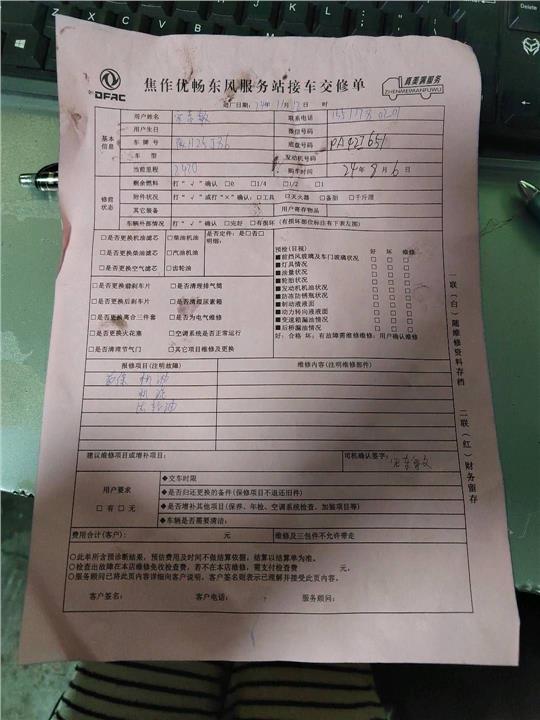 DFAC
焦作优畅东风服务站接车交修单
真美满服务
ZHENMEIMANFUWU
进厂日期: 24年11月12日 时
基本信息
用户姓名 联系电话
用户生日 微信号码
车牌号 底盘号码 PA42J651
车型 发动机号码
当前里程 2420 购车时间 24年8月6日
修前状态
剩余燃料 打“√”确认 □0 □1/4 □1/2 □1
附件状况 打“√”或打“×”确认: □工具 □灭火器 □备胎 □千斤顶
其它装备 用户寄存物品
车辆外部情况 打“√”确认 □完好 □有损坏(有损坏部位标注有下表左图)
□是否更换机油滤芯 □柴油机油 是否定件: 是□否□
明细:
□是否更换柴油滤芯 □汽油机油
□是否更换空气滤芯 □齿轮油
□是否更换前刹车片 □是否清理排气筒
□是否更换后刹车片 □是否清理尿素箱
□是否更换离合三件套 □是否为电气维修
□是否更换火花塞 □空调系统是否正常运行
□是否清理节气门 □其它项目维修及更换
预检(目视) 好 坏 维修
■前挡风玻璃及车门玻璃状况 □ □ □
■灯具情况 □ □ □
■油量状况 □ □ □
■轮胎状况 □ □ □
■发动机机油状况 □ □ □
■防冻防锈瓶状况 □ □ □
■制动液液面 □ □ □
■动力转向液液面 □ □ □
■变速箱漏油情况 □ □ □
■后桥漏油情况 □ □ □
好: 合格 坏: 有故障需维修维修: 用户确认维修
报修项目(注明故障) 维修内容(注明维修部件)
机油
机滤
齿轮油
建议维修项目或增补项目: 司机确认签字:
用户要求
□有 □无
◆交车时限
◆是否归还更换的备件(保修项目不退还旧件)
◆是否增补其他项目(保养、年检、空调系统检查、加装项目等)
◆车辆是否需要清洁:
费用合计(客户): 元 维修及三包件不允许带走
○此单所含预诊断结果, 预估费用及时间不做结算依据, 结算以结算单为准。
○检查出故障在本店维修免收检查费, 若不在本店维修, 需支付检查费 元。
○服务顾问已将此页内容详细向客户说明, 客户签名则表示已理解并接受此页内容。
客户签名: 客户电话: 服务顾问:
一联(白)随维修资料存档 二联(红)财务留存